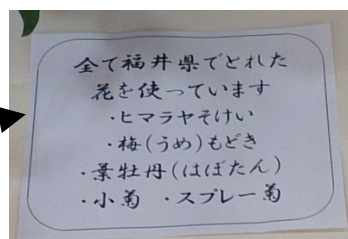 全て福井県でとれた
花を使っています
・ヒマラヤそけい
・梅(うめ)もどき
・葉牡丹(はぼたん)
・小菊 ・スプレー菊